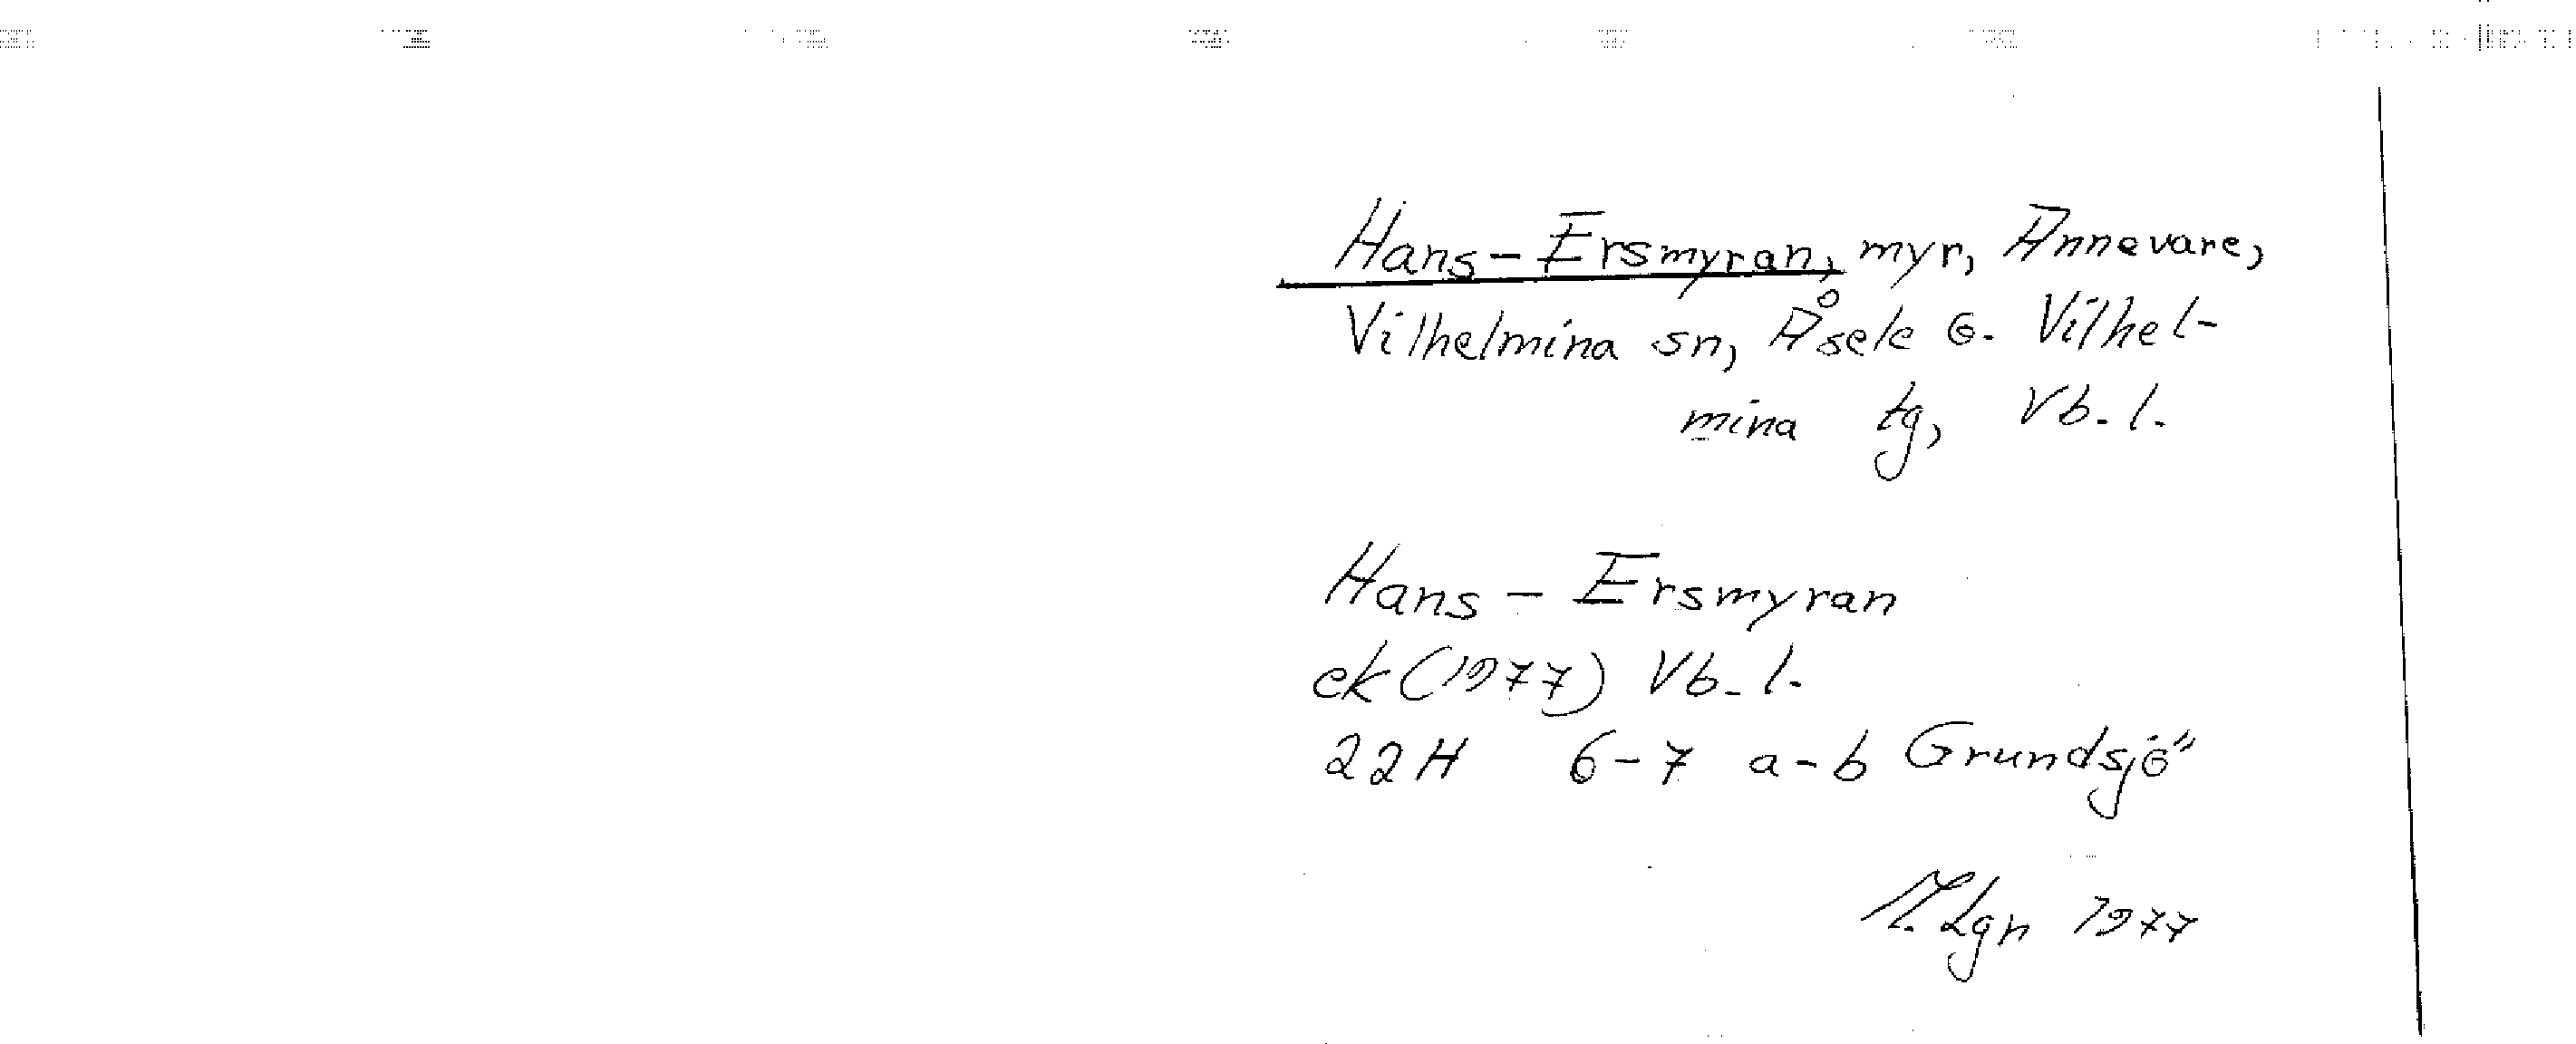 Hans-Ersmyran, myr, Annevare,
Vilhelmina sn, Åsele o. Vilhel-
mina tg, Vb. l.
Hans - Ersmyran
ek (1977) Vb. l.
22H 6-7 a-b Grundsjö
M. Lgn 1977